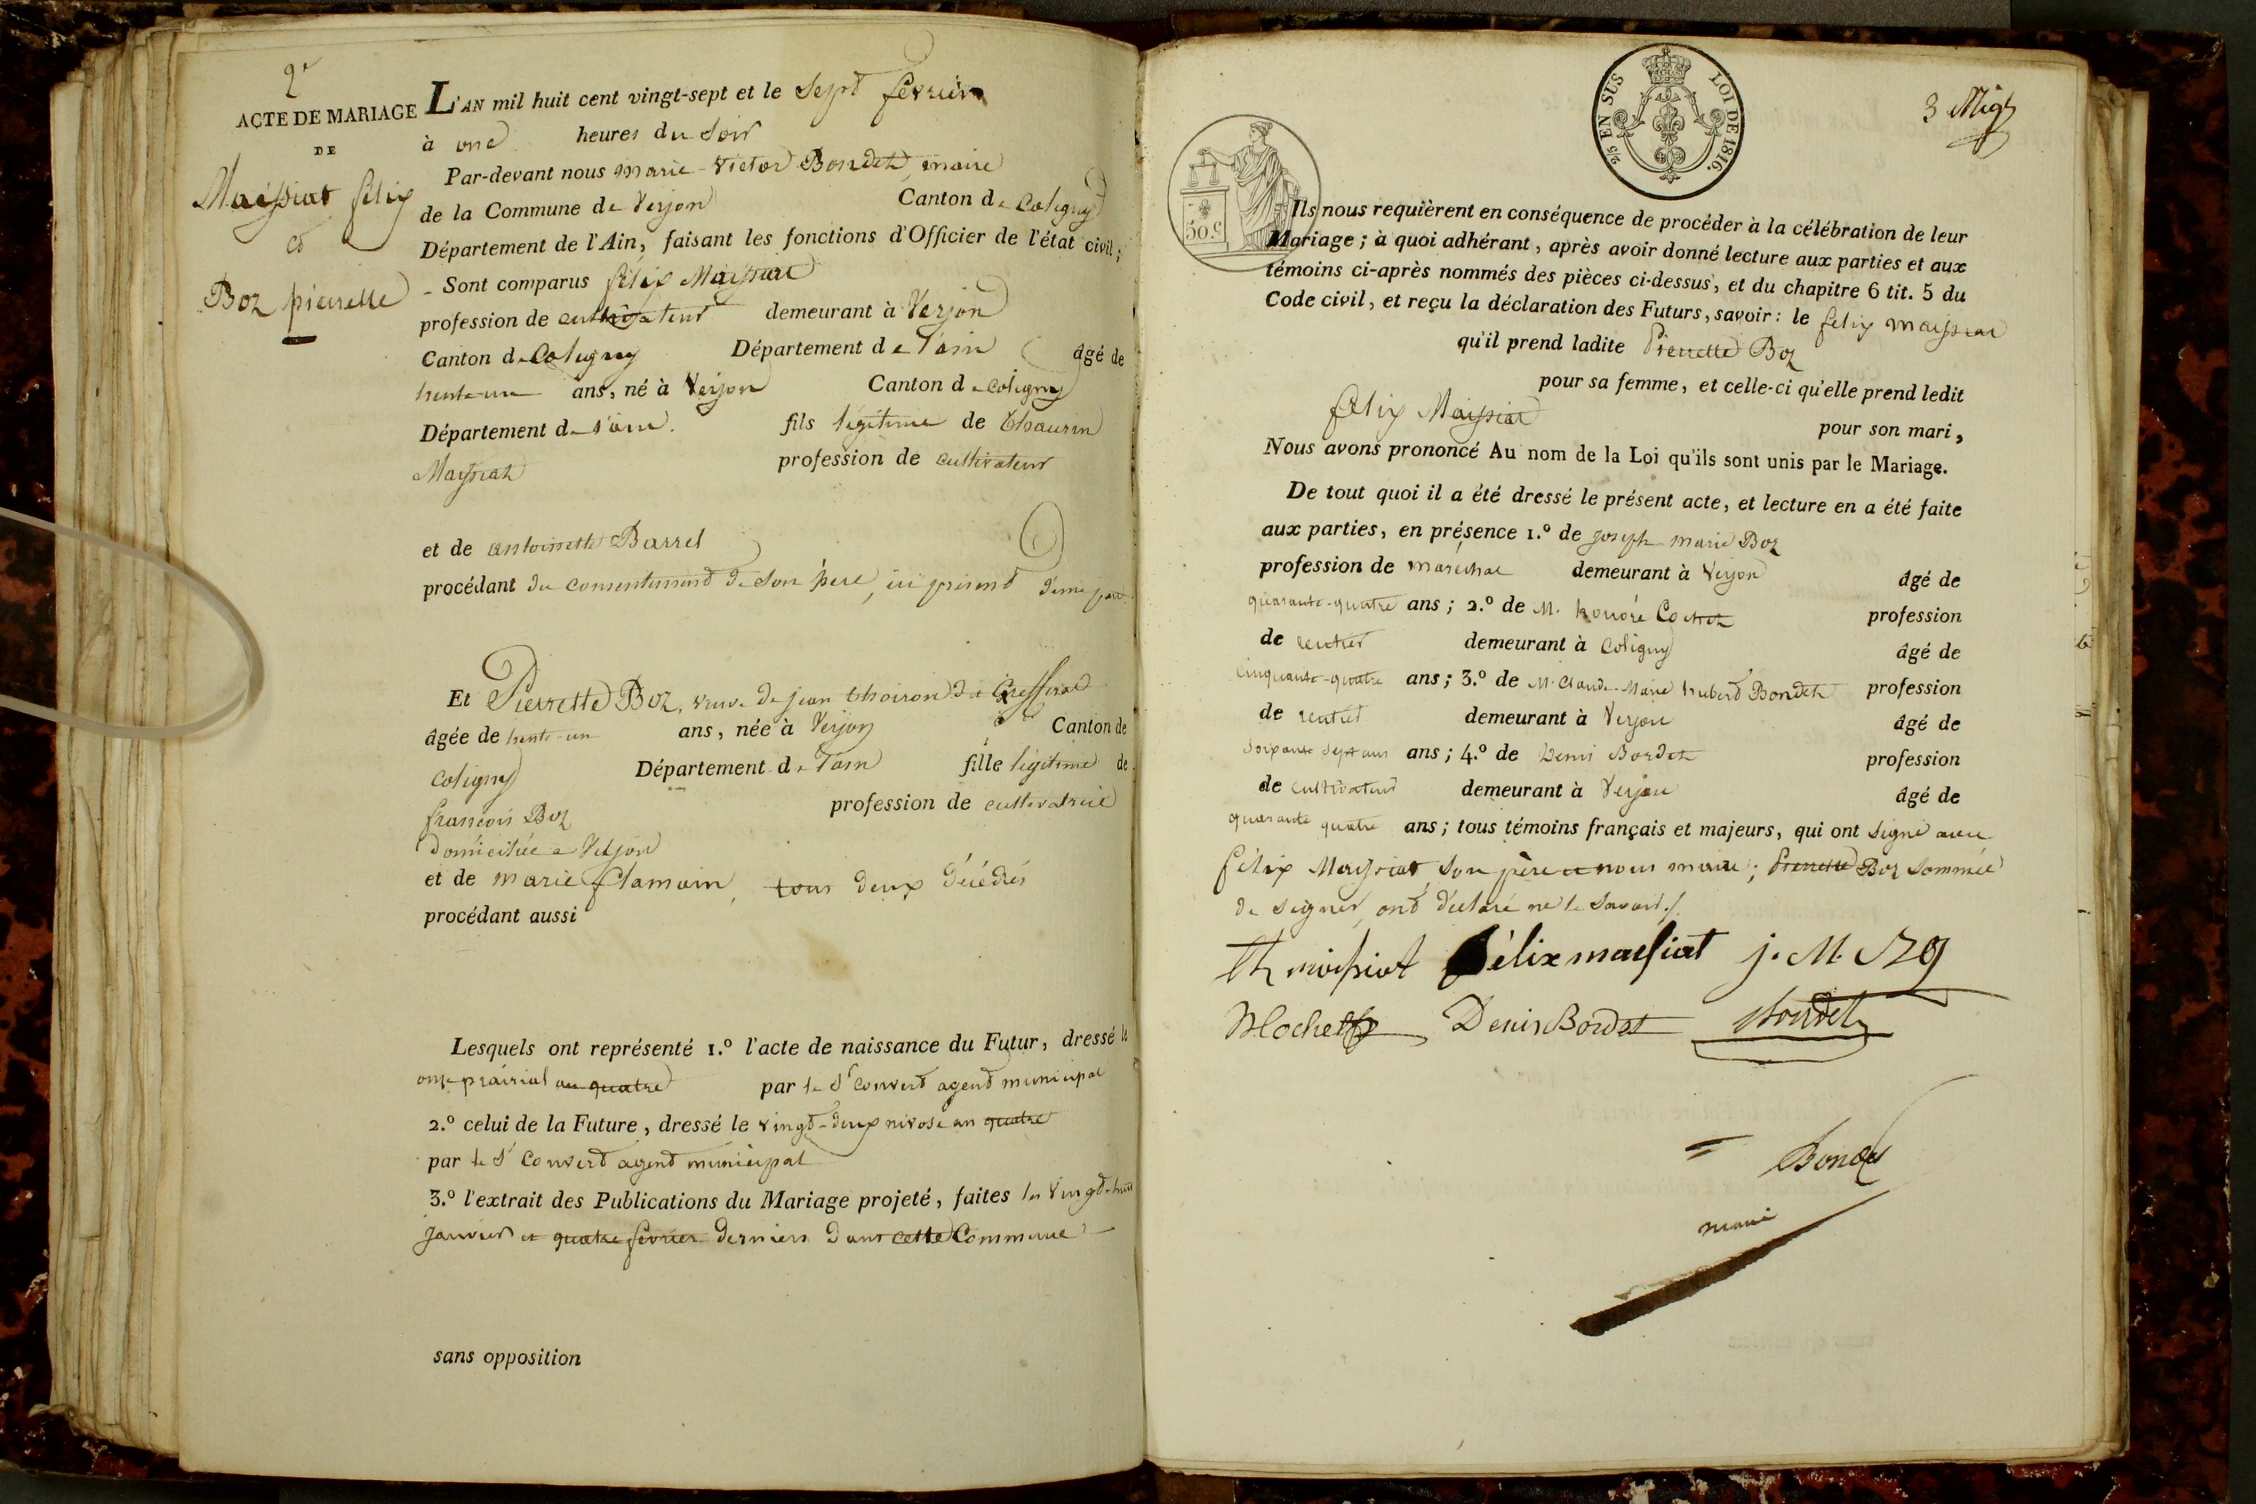 2e
ACTE DE MARIAGE
DE
Maissiat félix
et
Boz pierrette
L'AN mil huit cent vingt-sept et le sept février
à une heures du soir
Par-devant nous marie-victor Bondet, maire
de la Commune de Verjon Canton de Coligny
Département de l'Ain, faisant les fonctions d'Officier de l'état civil;
Sont comparus félix Maissiat
profession de cultivateur demeurant à Verjon
Canton de Coligny Département de l'ain âgé de
trente-un ans, né à Verjon Canton de coligny
Département de l'ain. fils légitime de Thaurin
Maissiat profession de cultivateur
et de antoinette Barrel
procédant du consentement de son père, ici présent d'une part
Et Pierrette Boz, veuve de jean thoiron
âgée de trente-un ans, née à Verjon Canton de
Coligny Département de l'ain fille légitime de
françois Boz profession de cultivatrice
domiciliée à Verjon
et de marie Clamain, tous deux décédés
procédant aussi
Lesquels ont représenté 1.º l'acte de naissance du Futur, dressé le
onze prairial an quatre par le Sr Convert agent municipal
2.º celui de la Future, dressé le vingt-deux nivose an quatre
par le Sr Convert agent municipal
3.º l'extrait des Publications du Mariage projeté, faites les vingt-huit
janvier et quatre février derniers dans cette Commune
sans opposition
2/5 EN SUS LOI DE 1816.
50.c
Ils nous requièrent en conséquence de procéder à la célébration de leur
Mariage; à quoi adhérant, après avoir donné lecture aux parties et aux
témoins ci-après nommés des pièces ci-dessus, et du chapitre 6 tit. 5 du
Code civil, et reçu la déclaration des Futurs, savoir: le felix maissiat
qu'il prend ladite Pierrette Boz
pour sa femme, et celle-ci qu'elle prend ledit
félix Maissiat pour son mari,
Nous avons prononcé Au nom de la Loi qu'ils sont unis par le Mariage.
De tout quoi il a été dressé le présent acte, et lecture en a été faite
aux parties, en présence 1.º de joseph marie Boz
profession de maréchal demeurant à Verjon âgé de
quarante-quatre ans; 2.º de M. honoré Cochet profession
de rentier demeurant à Coligny âgé de
cinquante-quatre ans; 3.º de M. Claude-Marie hubert Bondet profession
de rentier demeurant à Verjon âgé de
soixante sept ans ans; 4.º de Denis Bordet profession
de cultivateur demeurant à Verjon âgé de
quarante quatre ans; tous témoins français et majeurs, qui ont signé avec
félix Maissiat son père et nous maire; Pierrette Boz sommée
de signer, ont déclaré ne le savoir./.
Th maissiat félix maissiat j. M. Boz
hCochet Denis Bordet Bondet
Bondet
maire